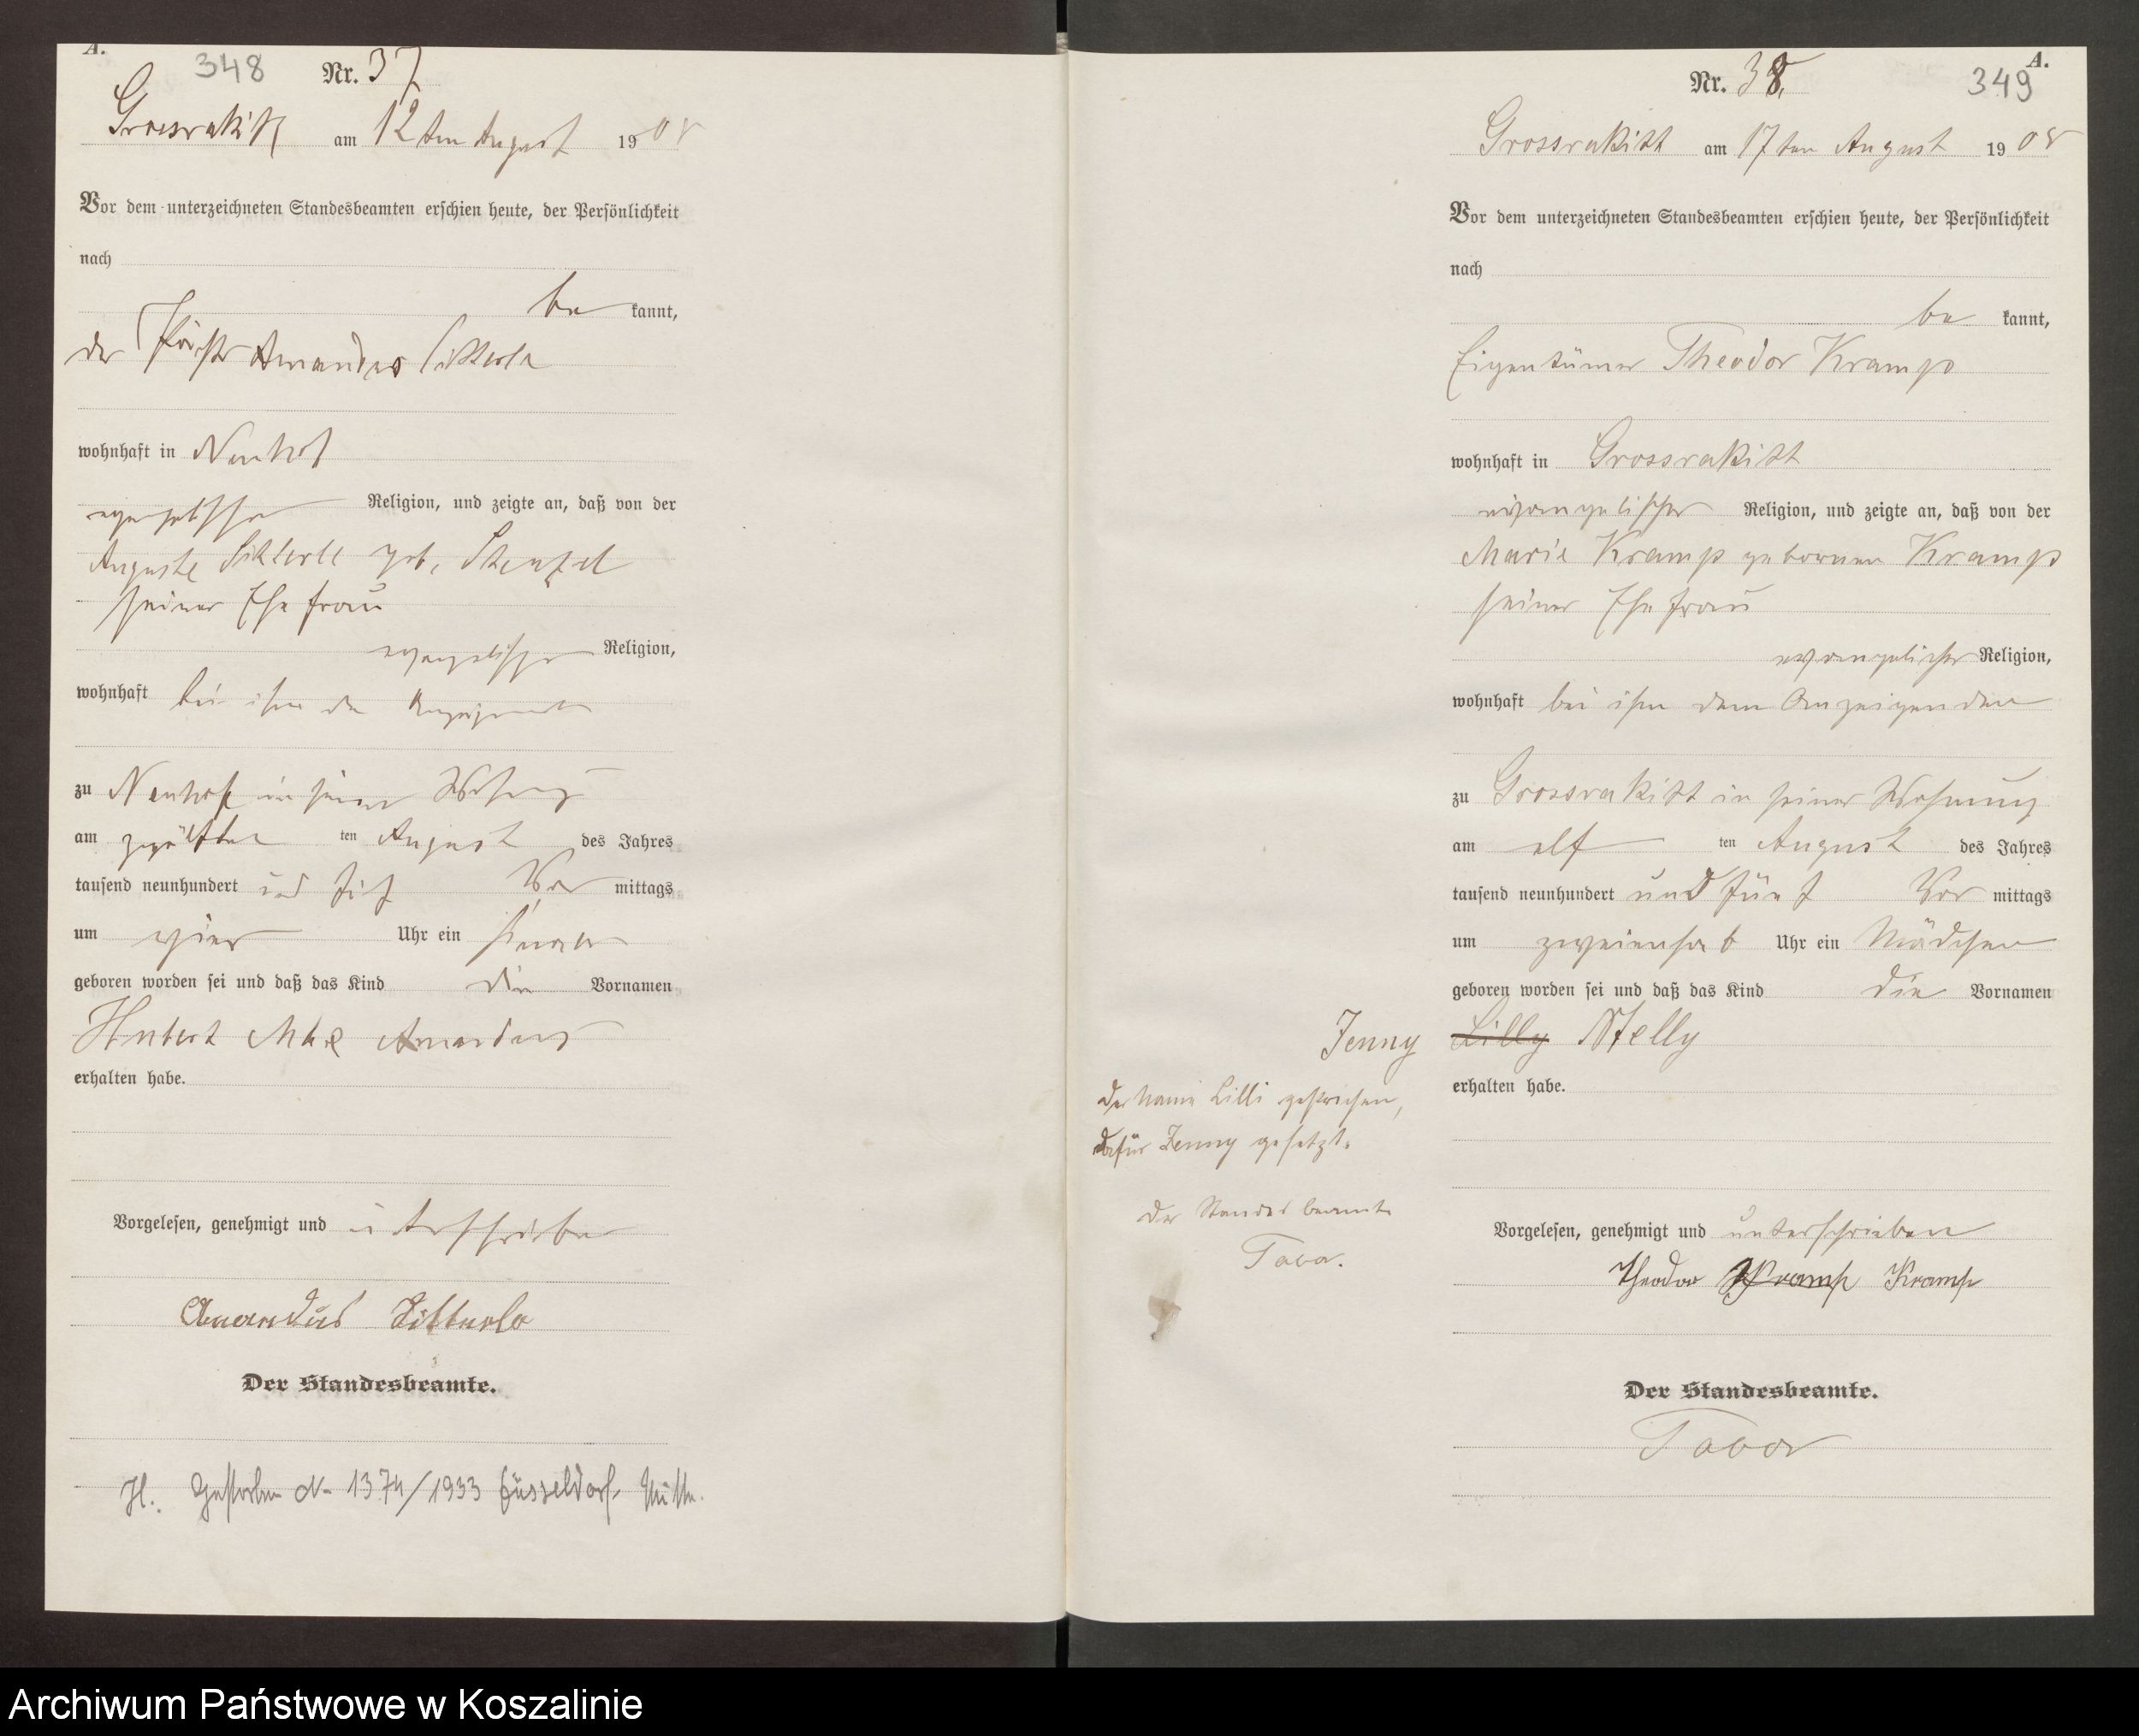 A.
348 Nr. 37
Grossrakitt am 12 ten August 1905
Vor dem unterzeichneten Standesbeamten erschien heute, der Persönlichkeit
nach
be kannt,
der Förster Amandus Sitterle
wohnhaft in Neuhof
evangelischer Religion, und zeigte an, daß von der
Auguste Sitterle geb. Stenzel
seiner Ehefrau
evangelischer Religion,
wohnhaft bei ihm
zu Neuhof in seiner Wohnung
am zwölften ten August des Jahres
tausend neunhundert und fünf Vor mittags
um vier Uhr ein Knabe
geboren worden sei und daß das Kind die Vornamen
Hubert Max Amandus
erhalten habe.
Vorgelesen, genehmigt und unterschrieben
Amandus Sitterle
Der Standesbeamte.
H. Gestorben Nr 1374/1933 Düsseldorf-Mitte.
A.
Nr. 38. 349
Grossrakitt am 17 ten August 1905
Vor dem unterzeichneten Standesbeamten erschien heute, der Persönlichkeit
nach
be kannt,
Eigentümer Theodor Kramp
wohnhaft in Grossrakitt
evangelischer Religion, und zeigte an, daß von der
Marie Kramp gebornen Kramp
seiner Ehefrau
evangelischer Religion,
wohnhaft bei ihm dem Anzeigenden
zu Grossrakitt in seiner Wohnung
am elf ten August des Jahres
tausend neunhundert und fünf Vor mittags
um zweieinhalb Uhr ein Mädchen
geboren worden sei und daß das Kind die Vornamen
Jenny Lilly Nelly
erhalten habe.
Der Name Lilli gestrichen,
dafür Jenny gesetzt.
Der Standesbeamte
Vorgelesen, genehmigt und unterschrieben
Theodor Kramp Kramp
Der Standesbeamte.
Archiwum Państwowe w Koszalinie